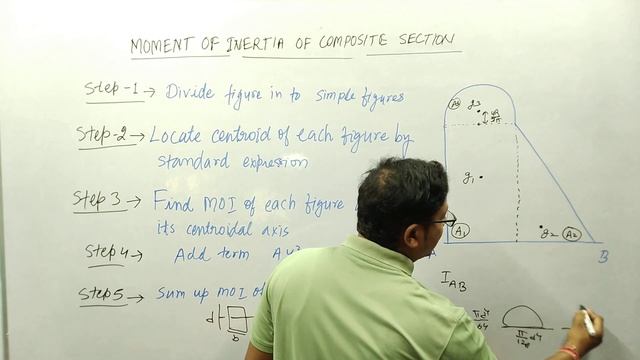 MOMENT OF INERTIA OF COMPOSITE SECTION
Step-1 → Divide figure in to simple figures
Step-2 → Locate centroid of each figure by
standard expression
Step 3 → Find MOI of each figure
its centroidal axis
Step 4 → Add term
Step 5 → Sum up MOI of
d
b
A3
g3
4R
3π
g1
A1
g2
A2
B
I AB
πd⁴
64
π
d⁴